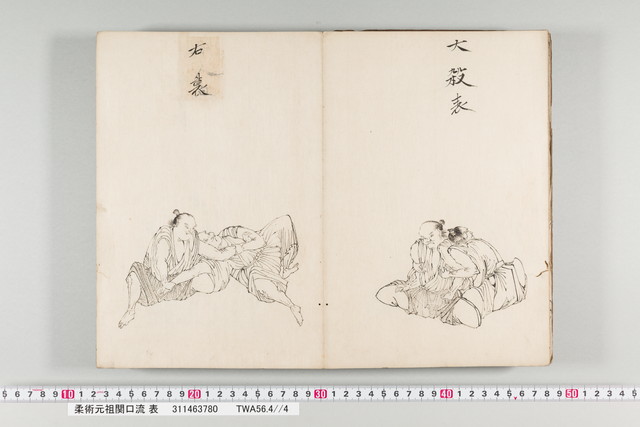 大殺表
右裏
5 6 7 8 9 10 1 2 3 4 5 6 7 8 9 20 1 2 3 4 5 6 7 8 9 30 1 2 3 4 5 6 7 8 9 40 1 2 3 4 5 6 7 8 9 50 1 2 3 4 5
柔術元祖関口流 表 311463780 TWA56.4//4